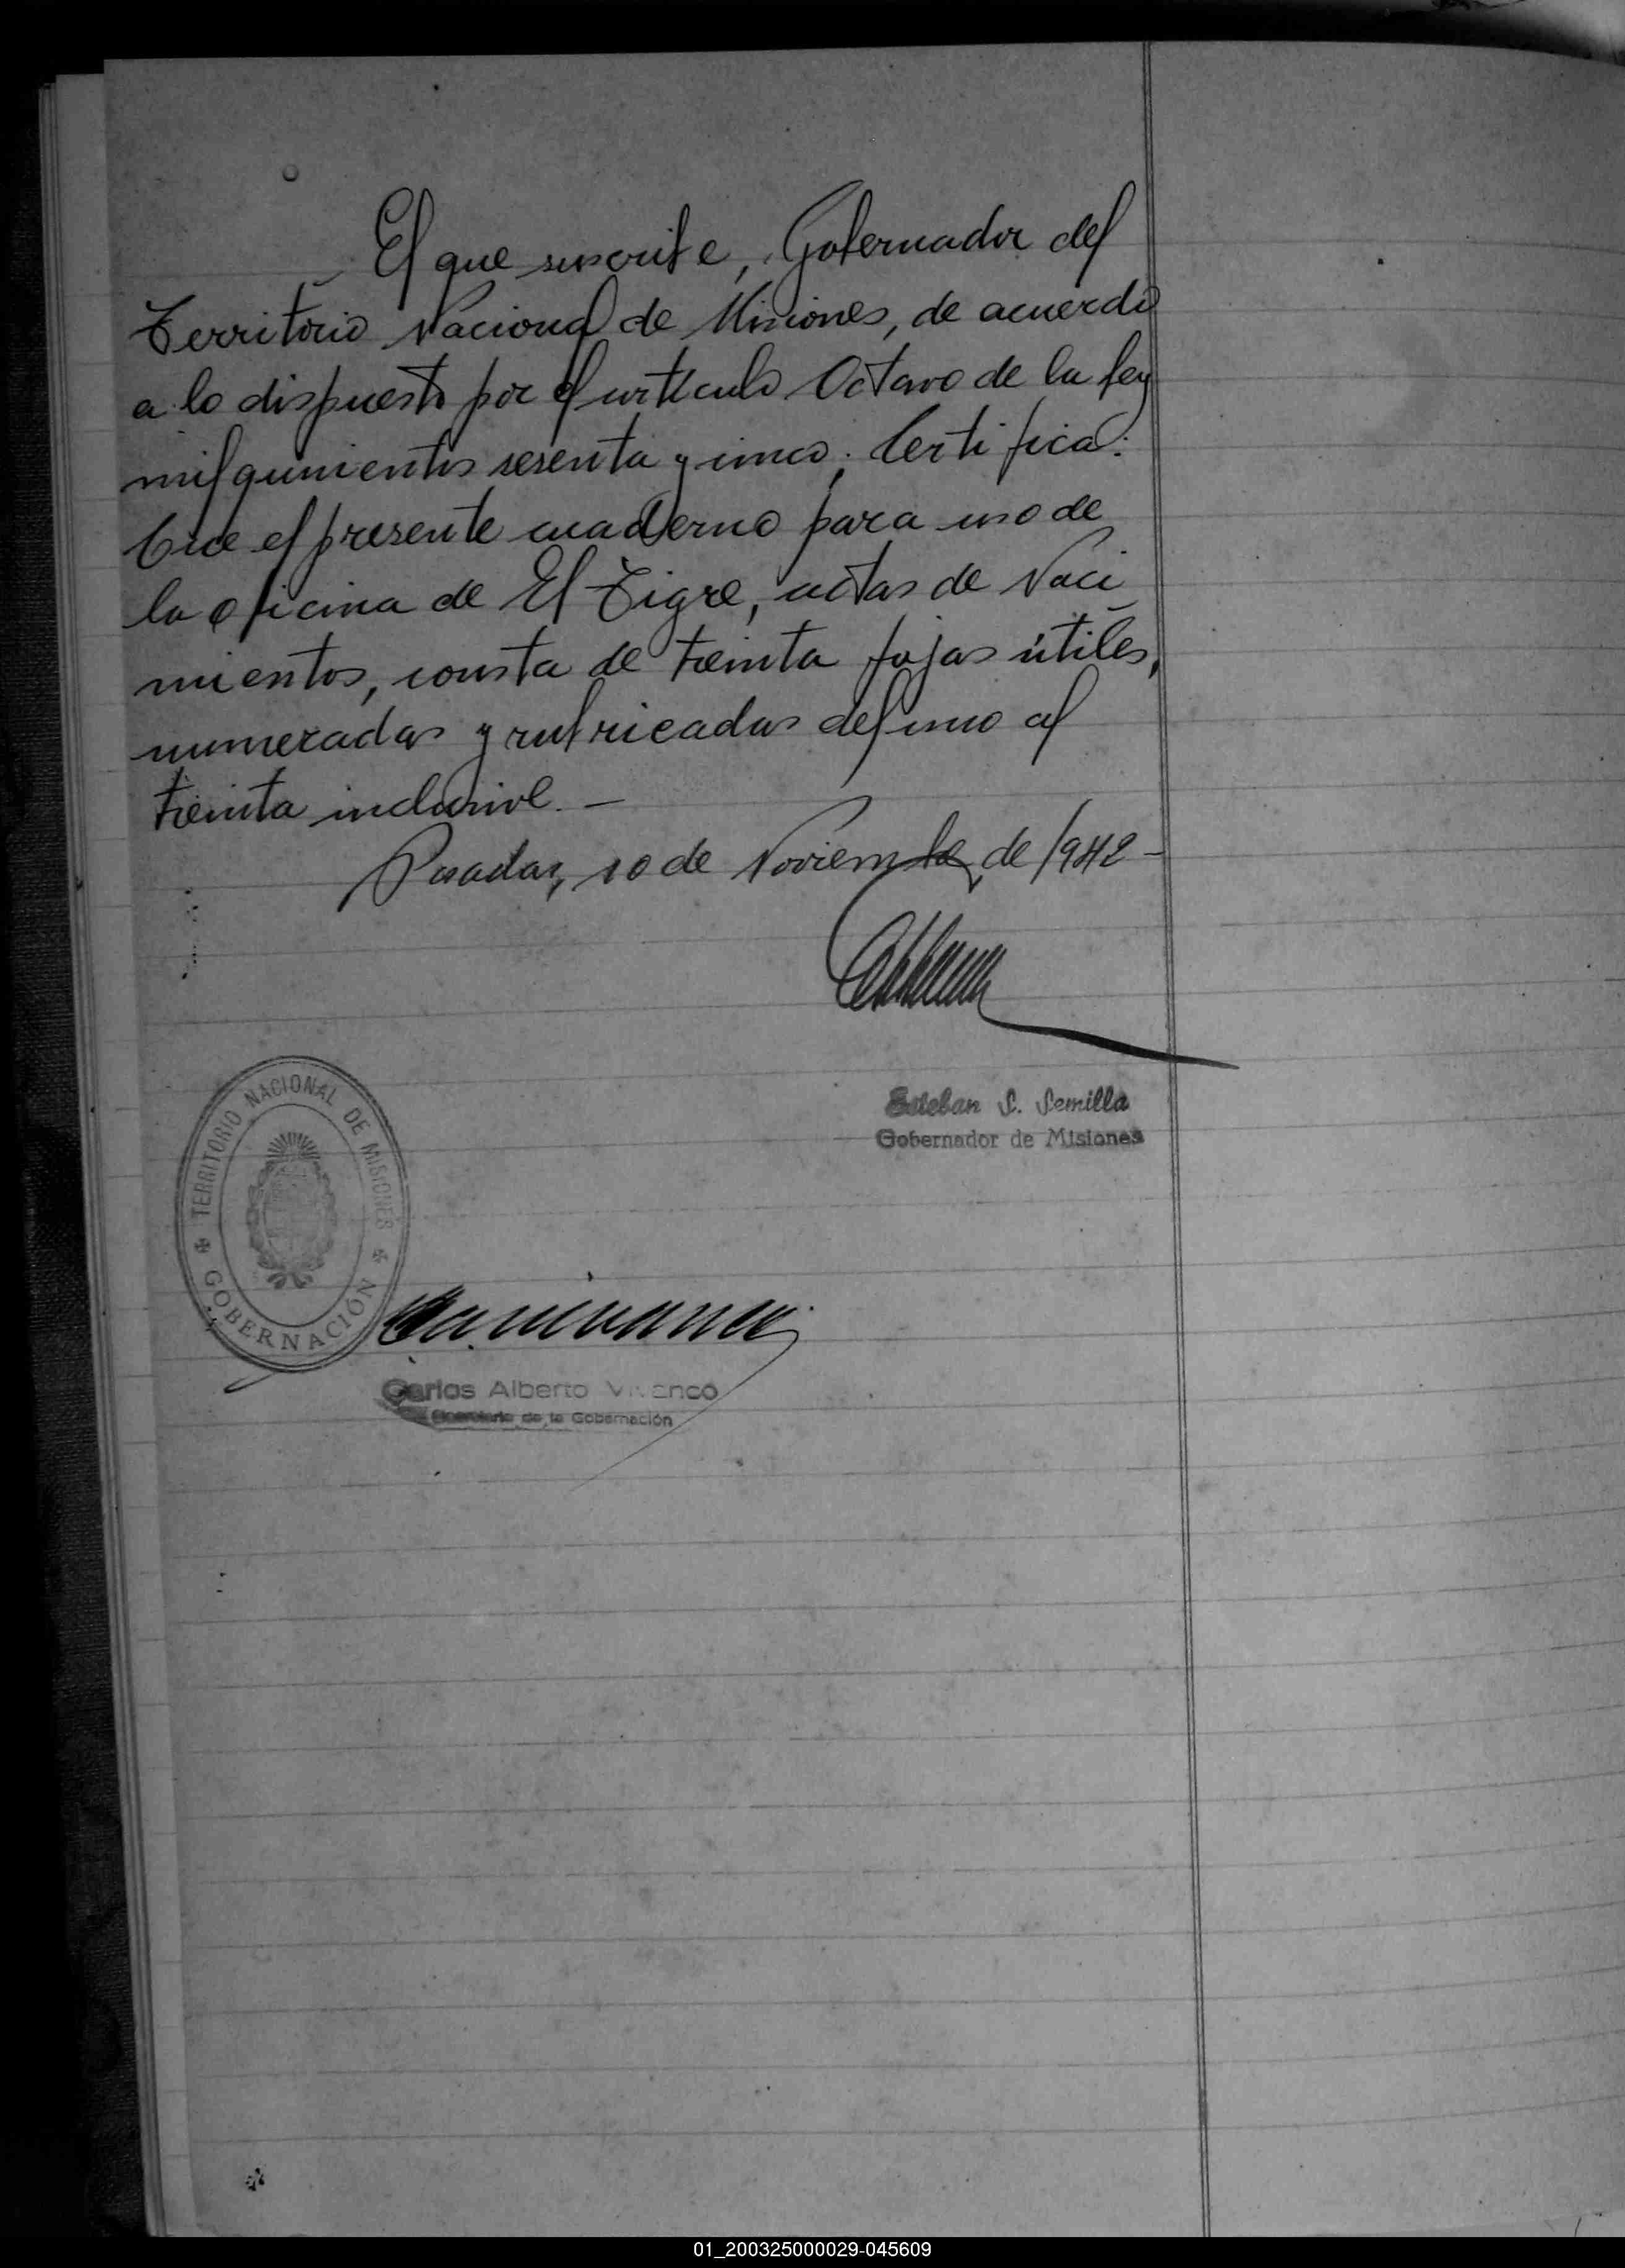 El que suscribe, Gobernador del
Territorio Nacional de Misiones, de acuerdo
a lo dispuesto por el artículo Octavo de la ley
mil quinientos sesenta y cinco; Certifica:
Que el presente cuaderno para uso de
la oficina de El Tigre, actas de Naci
mientos, consta de treinta fojas útiles,
numeradas y rubricadas del uno al
treinta inclusive. —
Posadas, 10 de Noviembre de 1942 —
Esteban S. Semilla
Gobernador de Misiones
TERRITORIO NACIONAL DE MISIONES
GOBERNACIÓN
Carlos Alberto Vivanco
Secretario de la Gobernación
01_200325000029-045609